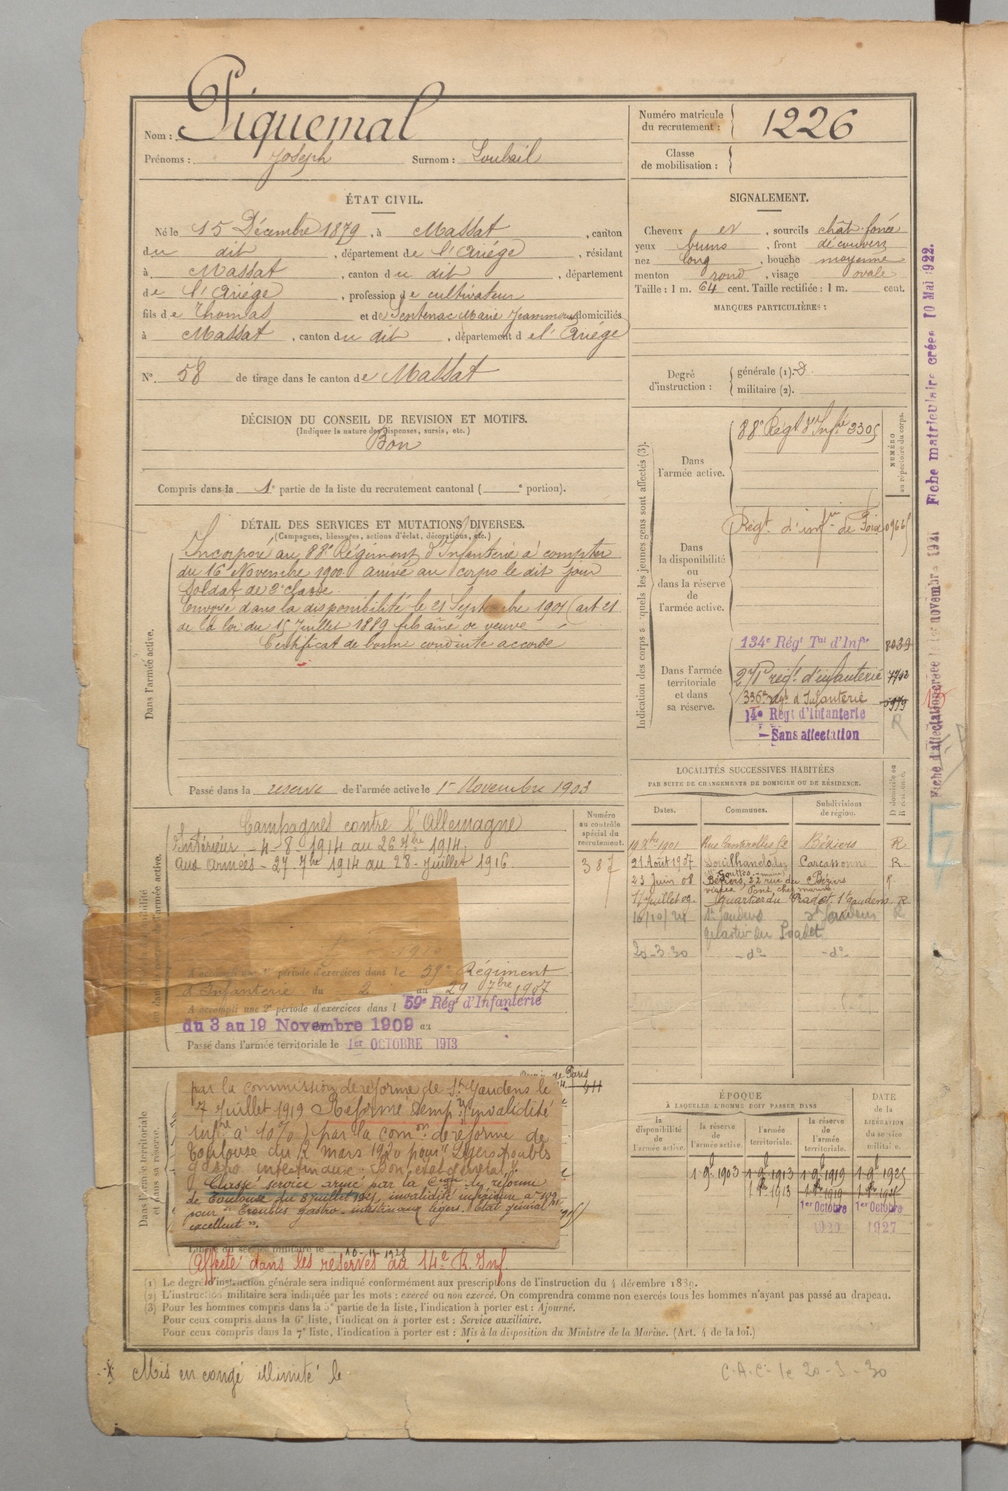 Nom : Piquemal
Prénoms : Joseph Surnom : Loubail
Numéro matricule du recrutement : 1226
Classe de mobilisation :
ÉTAT CIVIL.
Né le 15 Décembre 1879, à Massat, canton
du dit, département de l'Ariège, résidant
à Massat, canton du dit, département
de l'Ariège, profession de cultivateur
fils de Thomas et de Sentenac Marie Jeanne domiciliés
à Massat, canton du dit, département de l'Ariège
N° 58 de tirage dans le canton de Massat
DÉCISION DU CONSEIL DE REVISION ET MOTIFS.
(Indiquer la nature des dispenses, sursis, etc.)
Bon
Compris dans la 1e partie de la liste du recrutement cantonal ( e portion).
SIGNALEMENT.
Cheveux et, sourcils chât. foncé
yeux bruns, front découvert
nez long, bouche moyenne
menton rond, visage ovale
Taille : 1 m. 64 cent. Taille rectifiée : 1 m. cent.
MARQUES PARTICULIÈRES :
Degré d'instruction :
générale (1). 3
militaire (2).
DÉTAIL DES SERVICES ET MUTATIONS DIVERSES.
(Campagnes, blessures, actions d'éclat, décorations, etc.)
Dans l'armée active.
Incorporé au 88e Régiment d'Infanterie à compter
du 16 Novembre 1900 arrivé au corps le dit jour
Soldat de 2e classe.
Envoyé dans la disponibilité le 21 Septembre 1901 (art 21
de la loi du 15 Juillet 1889 fils aîné de veuve
Certificat de bonne conduite accordé
Passé dans la réserve de l'armée active le 1er Novembre 1903
Indication des corps auxquels les jeunes gens sont affectés (3).
NUMÉRO au répertoire du corps.
Dans l'armée active.
88e Régt d'Infie 3305
Dans la disponibilité ou dans la réserve de l'armée active.
Régt d'infie de Foix
Dans l'armée territoriale et dans sa réserve.
134e Régt Tal d'Infie
régt d'infanterie
336e régt d'Infanterie
14e Régt d'Infanterie
Sans affectation
Fiche matriculaire créée 10 Mai 1922.
Campagnes contre l'Allemagne
Intérieur - 4-8-1914 au 26 7bre 1914
Aux armées - 27 7bre 1914 au 28 Juillet 1916
Numéro au contrôle spécial du recrutement.
387
A accompli une 1re période d'exercices dans le 59e Régiment
d'Infanterie du 2 au 29 7bre 1907
A accompli une 2e période d'exercices dans l 59e Régt d'Infanterie
du 3 au 19 Novembre 1909 au
Passé dans l'armée territoriale le 1er OCTOBRE 1913
LOCALITÉS SUCCESSIVES HABITÉES
PAR SUITE DE CHANGEMENTS DE DOMICILE OU DE RÉSIDENCE.
Dates. Communes. Subdivisions de région.
Béziers R
21 Août 1907 Carcassonne R
23 Juin 08 Béziers, 22 rue du Béziers R
Quartier du St Gaudens R
St Gaudens St Gaudens R
quartier du
20-3-30 -do- -do-
Dans l'armée territoriale et dans sa réserve.
par la commission de réforme de St Gaudens le
7 Juillet 1919 Réforme tempre invalidité
infre à 10% par la comon de réforme de
Toulouse du 2 mars 1920 pour Légers troubles
gastro intestinaux. Bon état général
Classé service armé par la Cion de réforme
de Toulouse du 8 Juillet 1921, invalidité inférieure à 10%
pour "Troubles gastro-intestinaux légers. Etat général
excellent".
Affecté dans les réserves au 14e R. Inf.
ÉPOQUE
A LAQUELLE L'HOMME DOIT PASSER DANS
la disponibilité de l'armée active.
la réserve de l'armée active.
l'armée territoriale.
la réserve de l'armée territoriale.
DATE de la LIBÉRATION du service militaire.
1 9bre 1903 1 9bre 1913 1 9bre 1919 1 9bre 1925
1 8bre 1913
1er Octobre 1er Octobre
1927
(1) Le degré d'instruction générale sera indiqué conformément aux prescriptions de l'instruction du 4 décembre 1889.
(2) L'instruction militaire sera indiquée par les mots : exercé ou non exercé. On comprendra comme non exercés tous les hommes n'ayant pas passé au drapeau.
(3) Pour les hommes compris dans la 5e partie de la liste, l'indication à porter est : Ajourné.
Pour ceux compris dans la 6e liste, l'indication à porter est : Service auxiliaire.
Pour ceux compris dans la 7e liste, l'indication à porter est : Mis à la disposition du Ministre de la Marine. (Art. 4 de la loi.)
Mis en congé illimité le
C.A.C. le 20-3-30